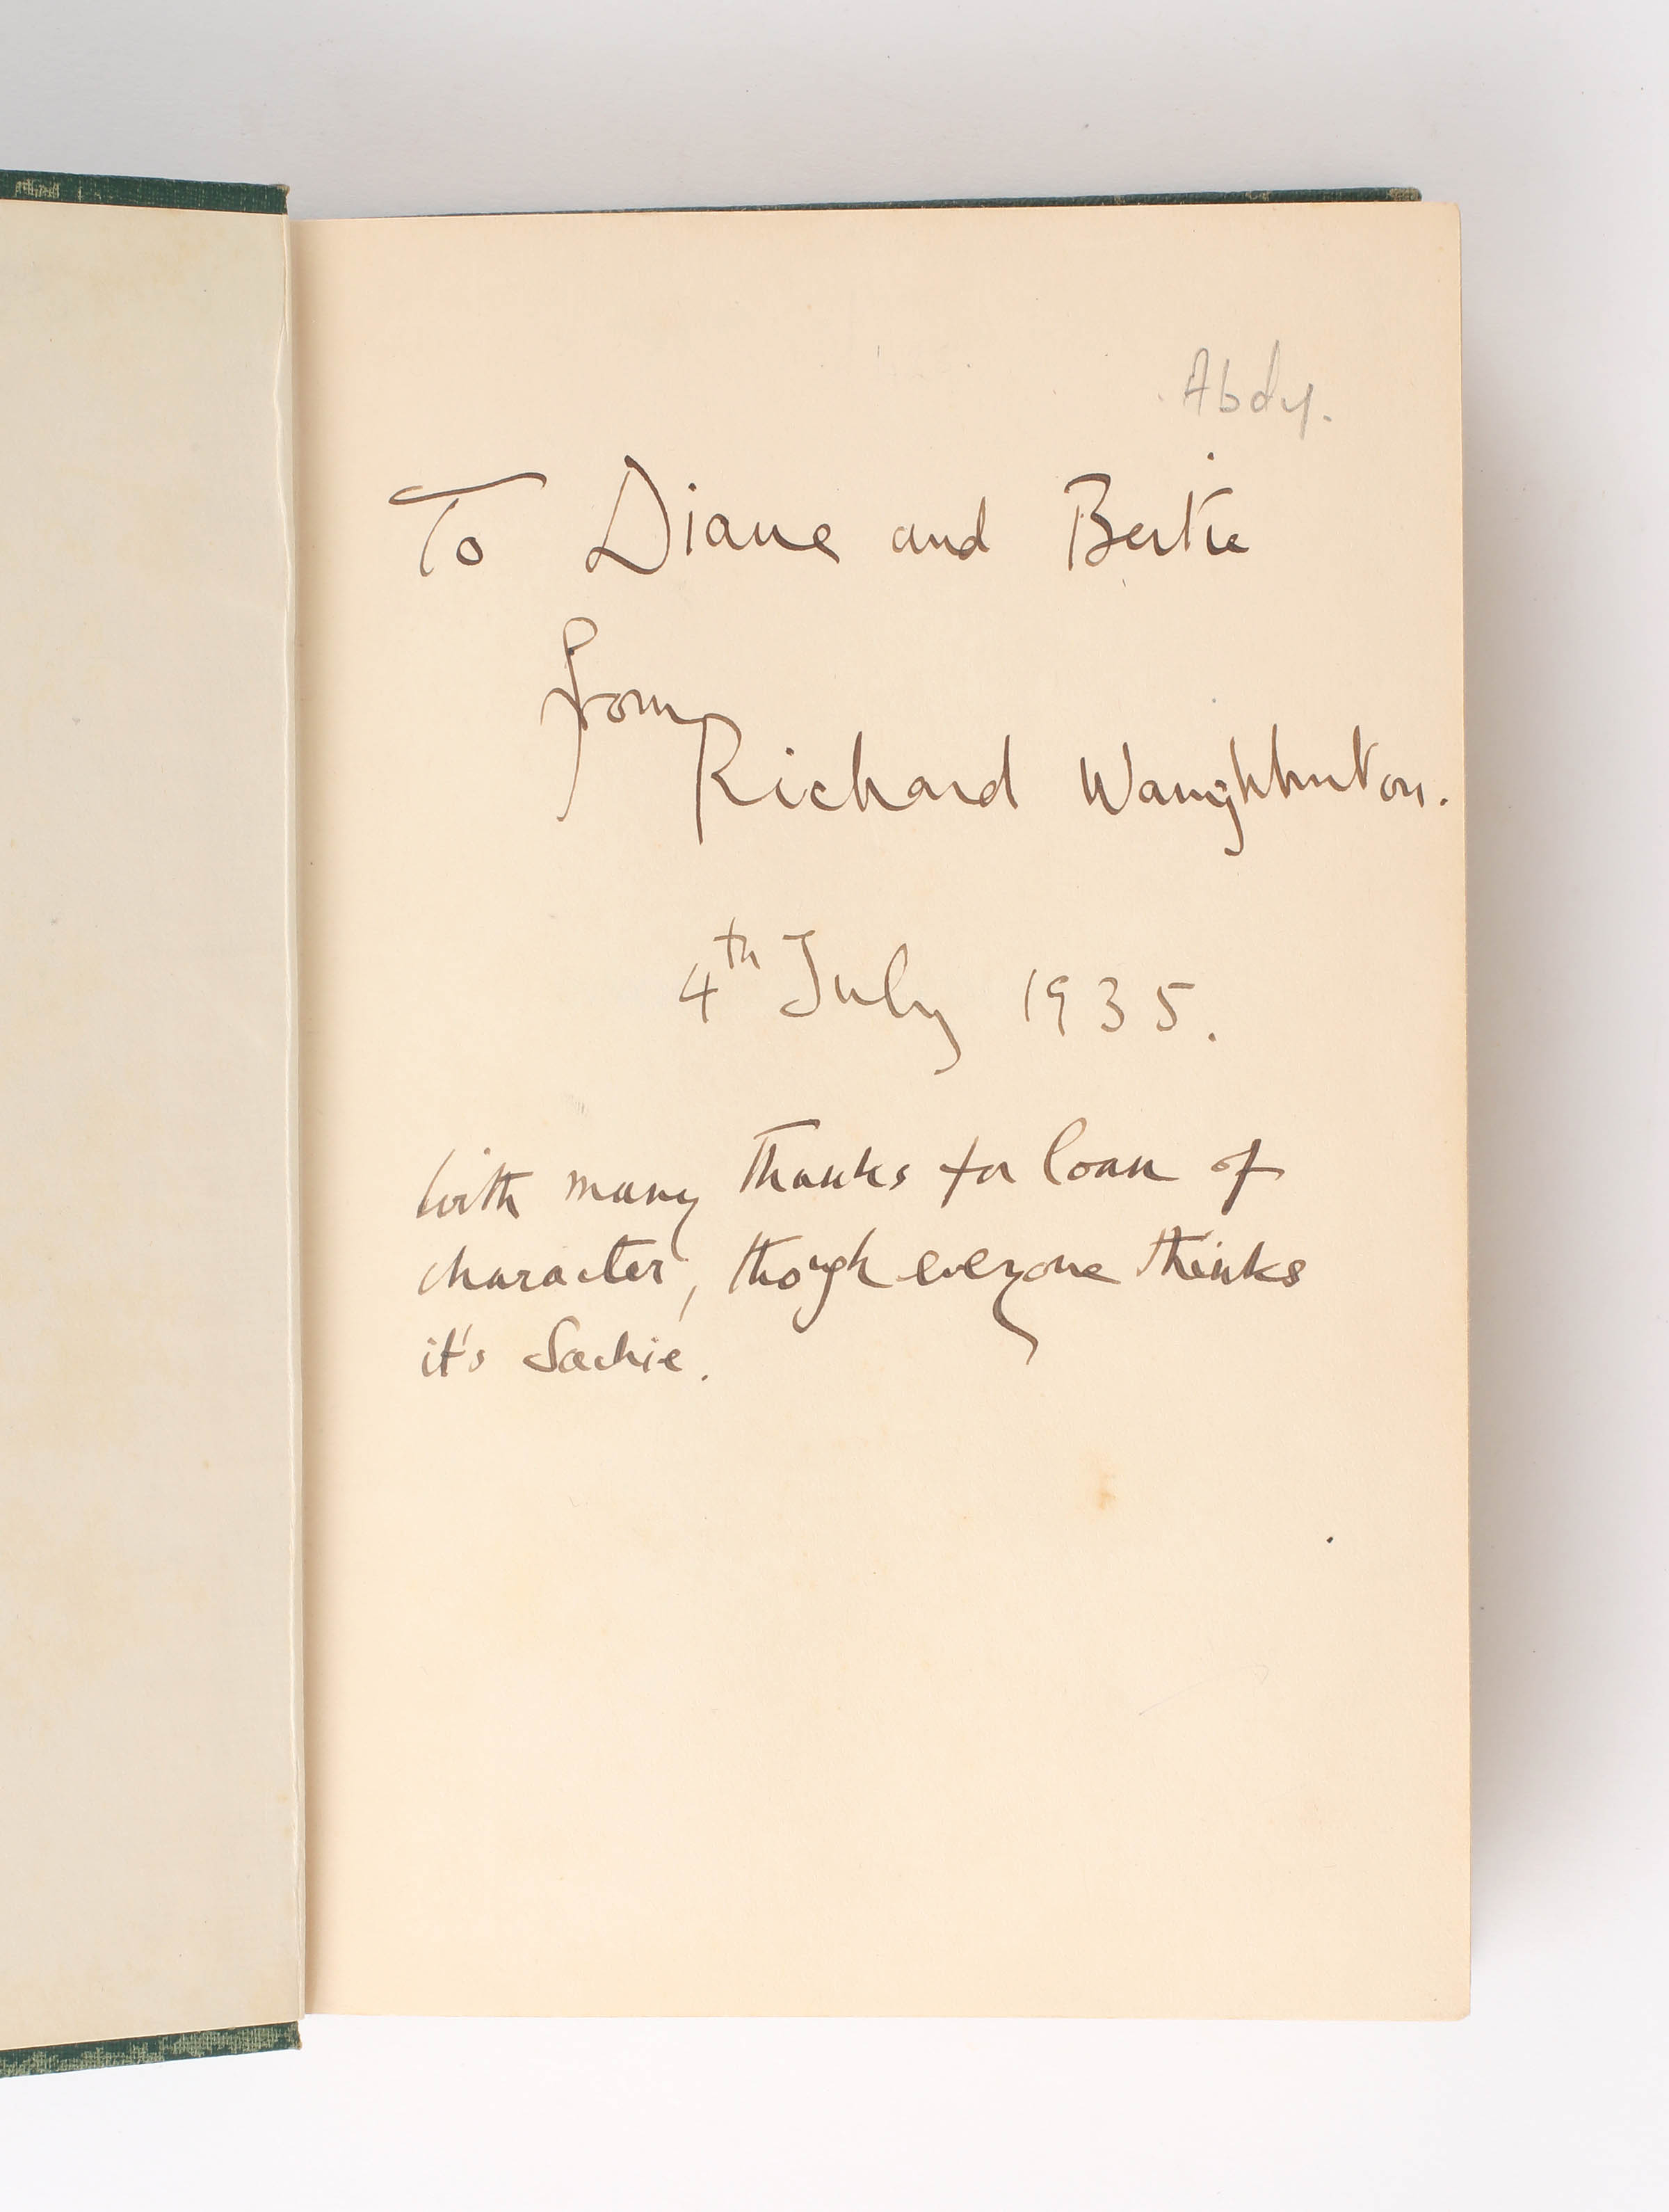 Abdy.
To Diane and Bertie
from
Richard Waughburton.
4th July 1935.
With many thanks for loan of
character, though everyone thinks
it's Sachie.